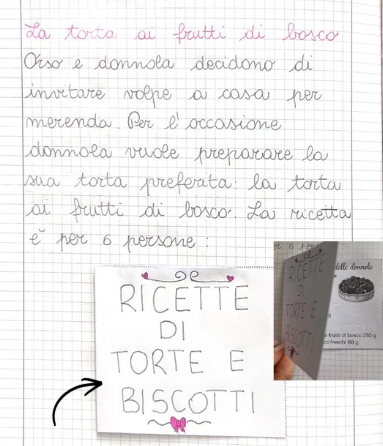 La torta ai frutti di bosco
Orso e donnola decidono di
invitare volpe a casa per
merenda. Per l'occasione
donnola vuole preparare la
sua torta preferita: la torta
ai frutti di bosco. La ricetta
è per 6 persone:
RICETTE
DI
TORTE E
BISCOTTI
RICETTE
DI
TORTE E
BISCOTTI
delle donnole
frutti di bosco 250 g
freschi 80 g